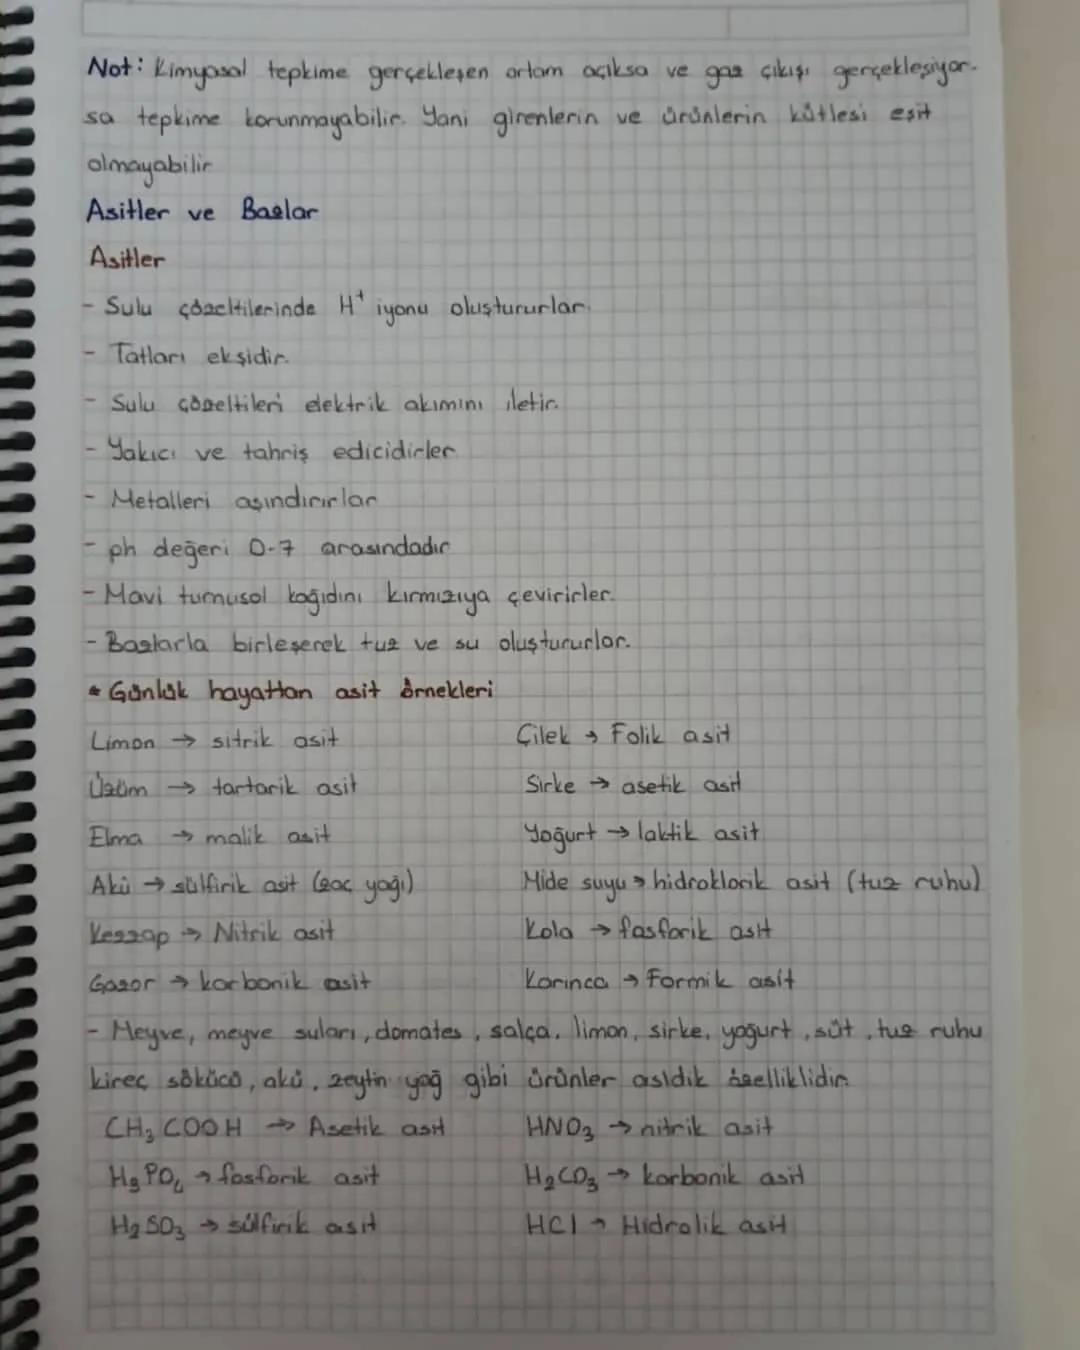 Not: Kimyasal tepkime gerçekleşen ortam açıksa ve gaz çıkışı gerçekleşiyor-
sa tepkime korunmayabilir. Yani girenlerin ve ürünlerin kütlesi eşit
olmayabilir
Asitler ve Bazlar
Asitler
- Sulu çözeltilerinde H⁺ iyonu oluştururlar.
- Tatları ekşidir.
- Sulu çözeltileri elektrik akımını iletir.
- Yakıcı ve tahriş edicidirler
- Metalleri aşındırırlar
- ph değeri 0-7 arasındadır
- Mavi turnusol kağıdını kırmızıya çevirirler.
- Bazlarla birleşerek tuz ve su oluştururlar.
* Günlük hayattan asit örnekleri
Limon → sitrik asit Çilek → Folik asit
Üzüm → tartarik asit Sirke → asetik asit
Elma → malik asit Yoğurt → laktik asit
Akü → sülfirik asit (zaç yağı) Mide suyu → hidroklorik asit (tuz ruhu)
Kezzap → Nitrik asit Kola → fosforik asit
Gazoz → karbonik asit Karınca → Formik asit
- Meyve, meyve suları, domates, salça, limon, sirke, yoğurt, süt, tuz ruhu
kireç sökücü, akü, zeytin yağ gibi ürünler asidik özelliklidir.
CH₃COOH → Asetik asit HNO₃ → nitrik asit
H₃PO₄ → fosforik asit H₂CO₃ → karbonik asit
H₂SO₃ → sülfirik asit HCl → Hidrolik asit